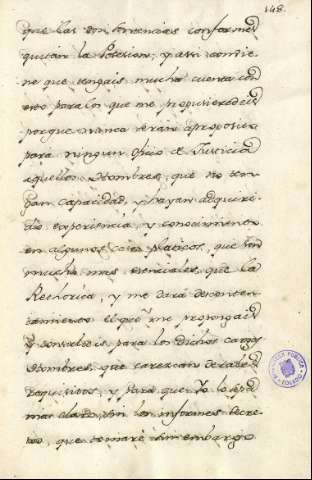 148
que las dos sentencias conforme
quitan la Posesion; y assi combie
ne que tengais mucha cuenta con
esto para los que me propusieredeis
porque nunca seran aproposito
para ningun oficio de Justicia
aquellos Hombres, que no ten
gan capacidad, y hayan adquiri
do experiencia, y conocimiento
en algunos casos platicos, que son
mucho mas esenciales, que la
Rethorica, y me dará desconten
tamiento el que me propongais
y consulteis para los dichos cargos
Hombres, que carezcan de tales
requisitos, y para que Yo lo sepa
mas claro, sin los informes secre
tos, que tomaré sin embargo
BIBLIOTECA PUBLICA
TOLEDO